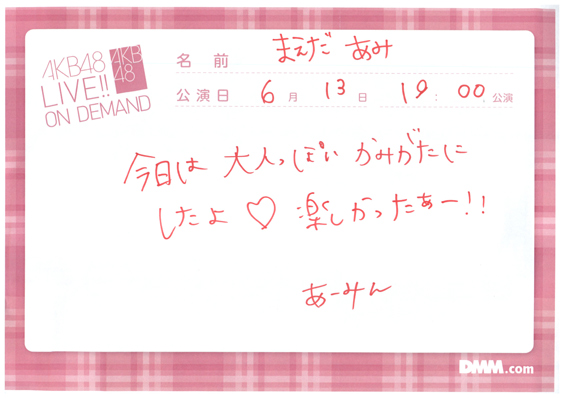 AKB48
LIVE!!
ON DEMAND
AKB
48
名前 まえだ あみ
公演日 6月 13日 19:00 公演
今日は 大人っぽい かみがたに
したよ♡ 楽しかったぁー!!
あーみん
DMM.com